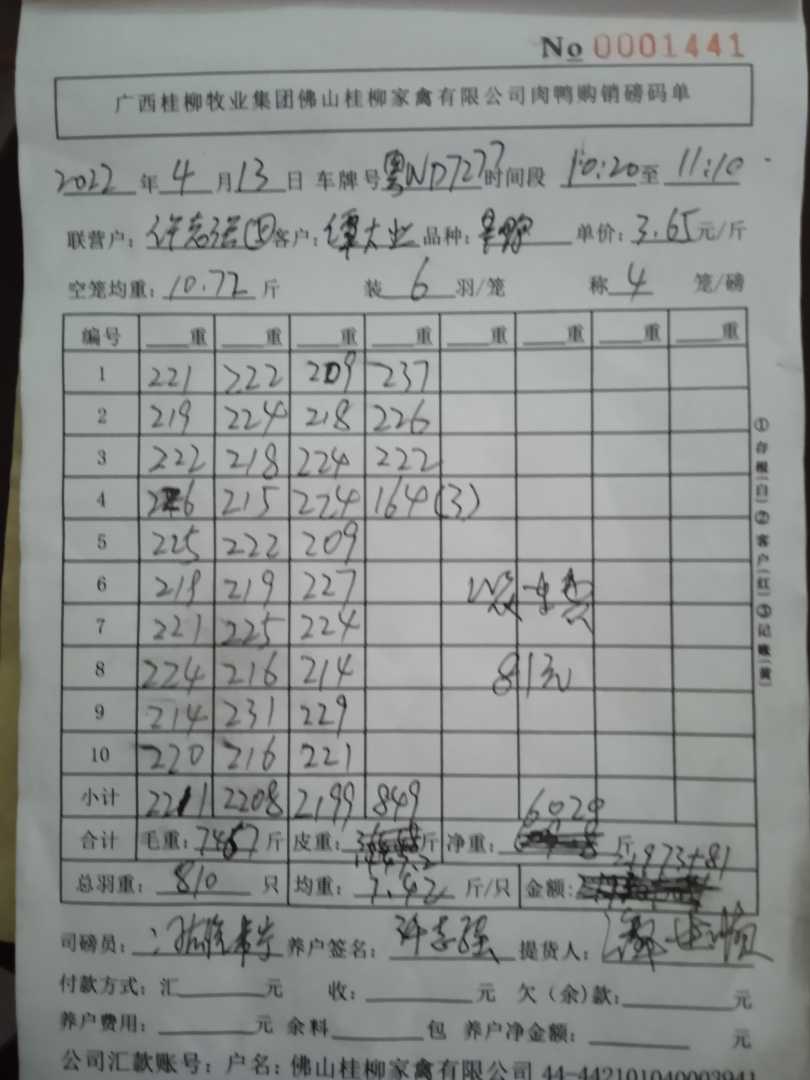 No 0001441
广西桂柳牧业集团佛山桂柳家禽有限公司肉鸭购销磅码单
2022 年 4 月 13 日 车牌号 粤WD7277 时间段 10:20 至 11:10
联营户: 许志强 客户: 谭大业 品种: 单价: 3.65 元/斤
空笼均重: 10.72 斤 装 6 羽/笼 称 4 笼/磅
编号 重 重 重 重 重 重 重 重
1 221 222 209 237
2 219 224 218 226
3 222 218 224 222
4 226 215 224 164(3)
5 225 222 209
6 219 219 227
7 221 225 224
8 224 216 214
9 214 231 229
10 220 216 221
81元
小计 2211 2208 2199 849
6028
合计 毛重: 7467 斤 皮重: 斤 净重: 斤
21973+81
总羽重: 810 只 均重: 7.42 斤/只 金额:
司磅员: 养户签名: 许志强 提货人:
付款方式: 汇 元 收: 元 欠(余)款: 元
养户费用: 元 余料 包 养户净金额: 元
公司汇款账号: 户名: 佛山桂柳家禽有限公司 44-442101040003941
①存根(白)②客户(红)③记账(黄)